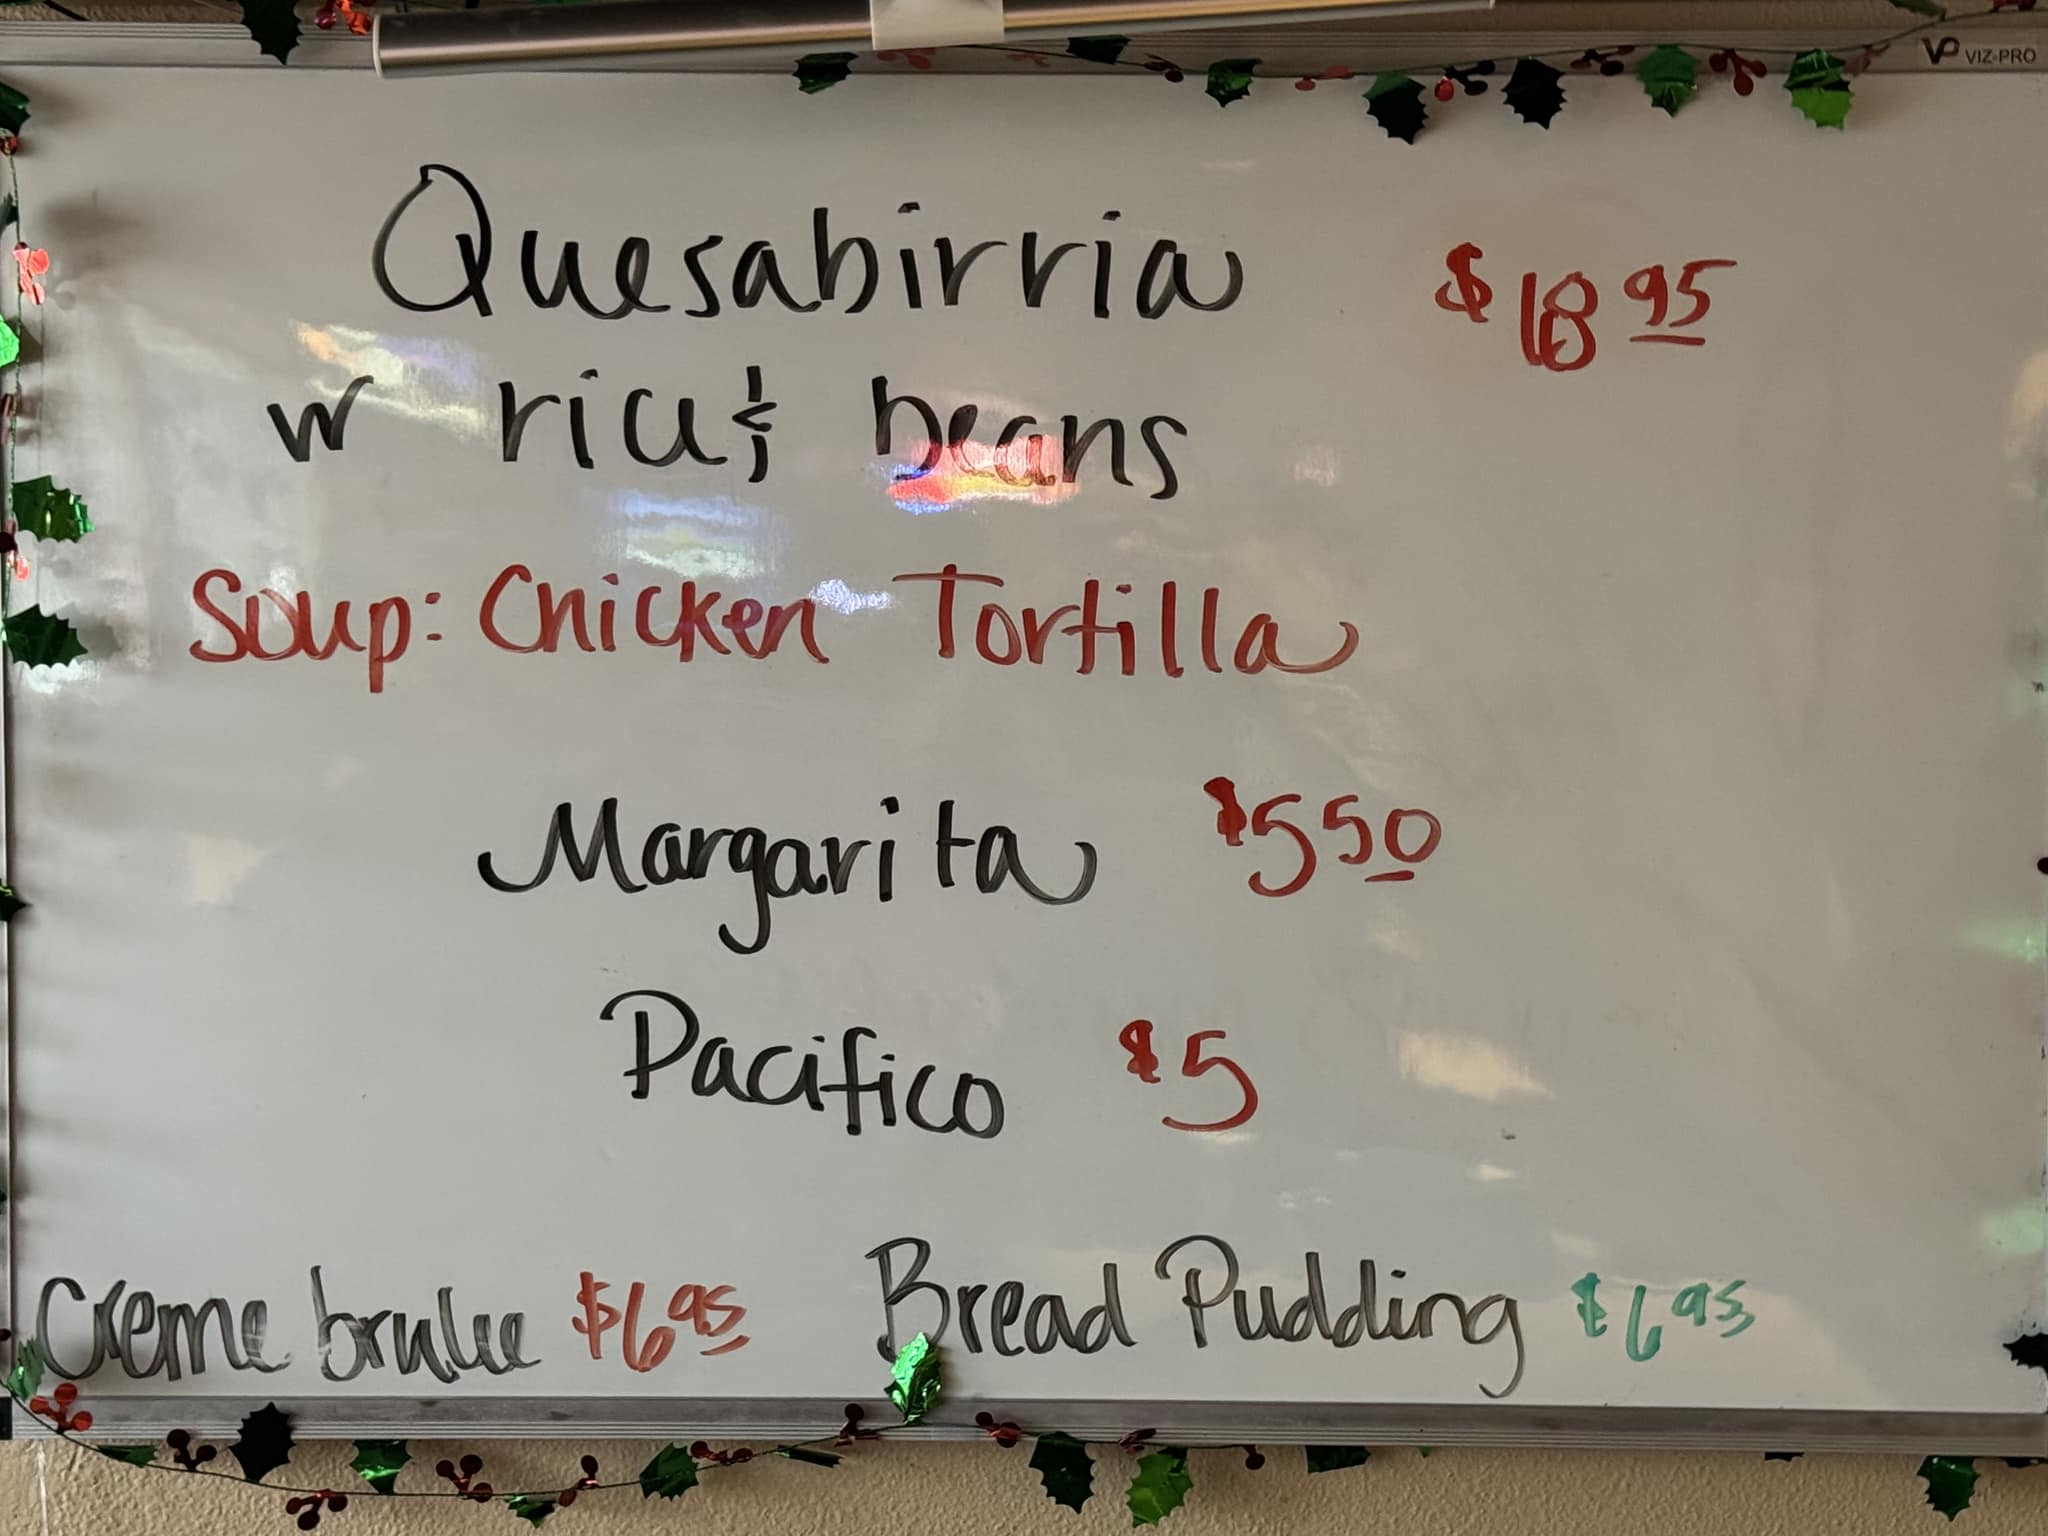 VP VIZ-PRO
Quesabirria $18 95
w rice & beans
Soup: Chicken Tortilla
Margarita $5 50
Pacifico $5
Creme brulee $6 95 Bread Pudding $6 95